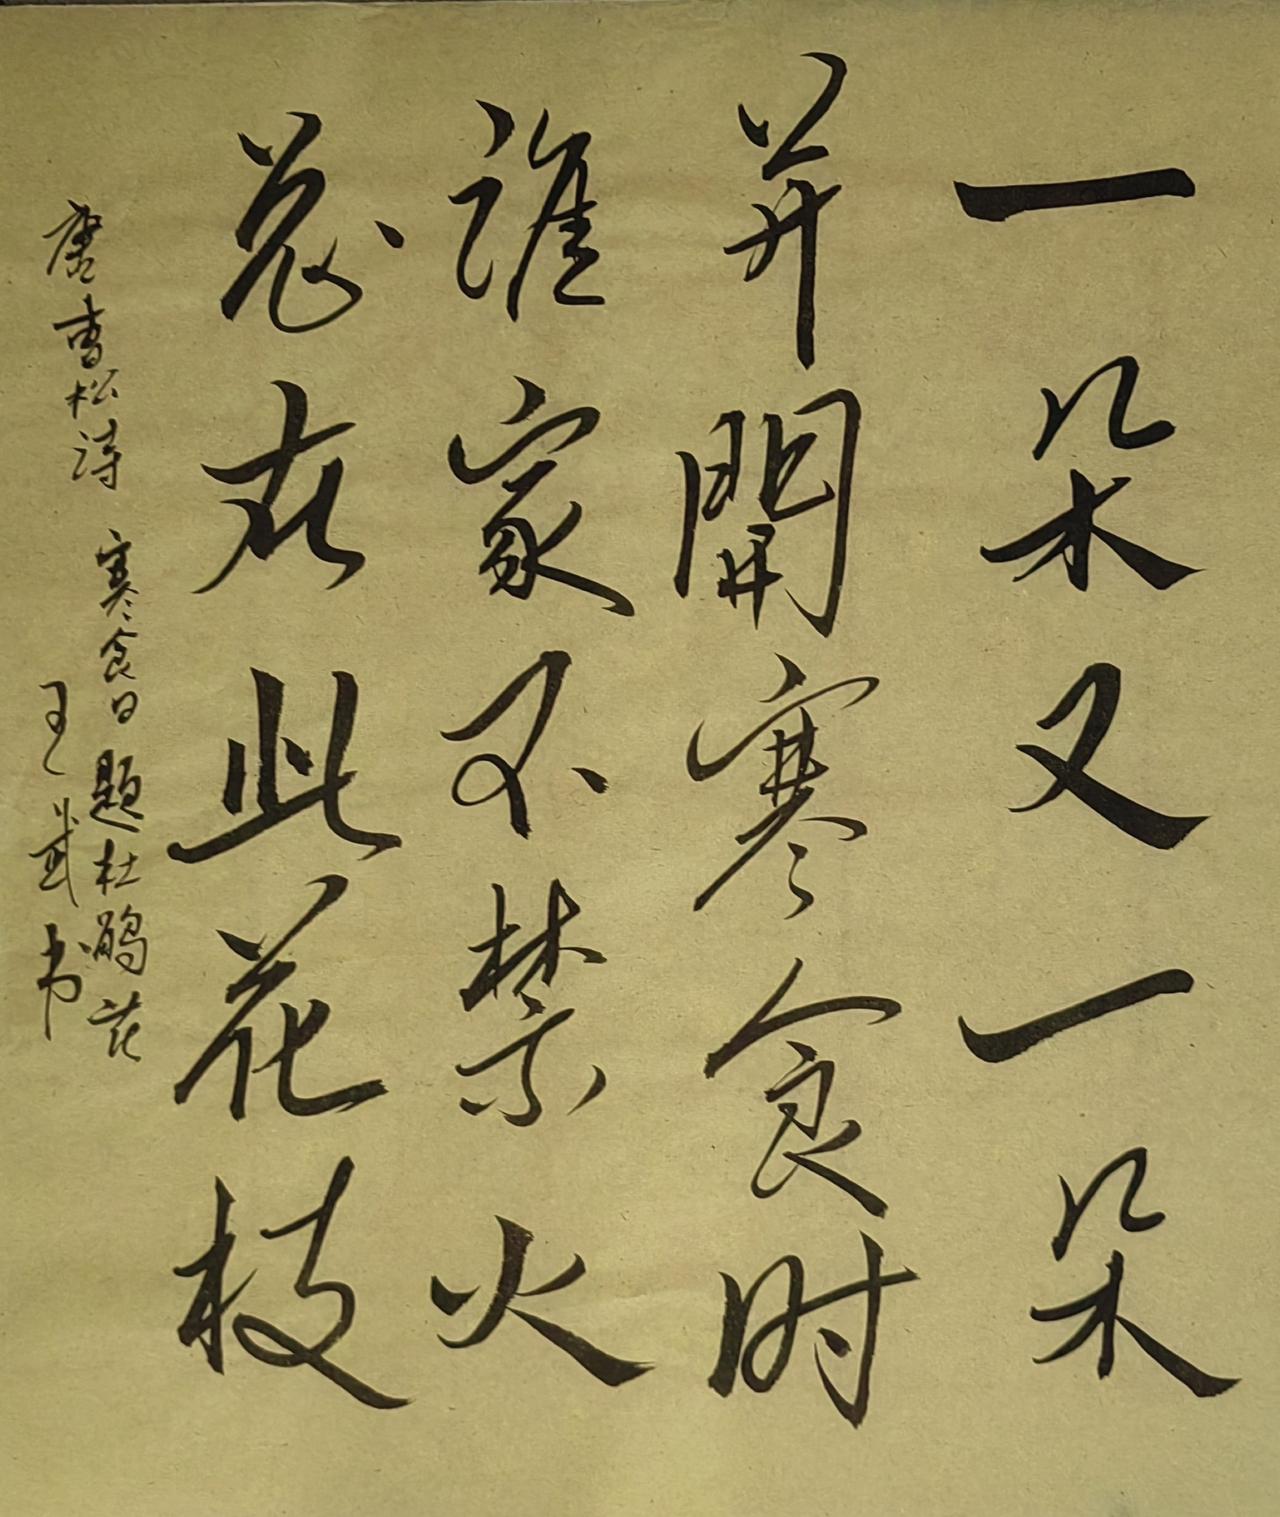 一朵又一朵
并開寒食时
谁家不禁火
总在此花枝
唐曹松诗 寒食日题杜鹃花
王斌书